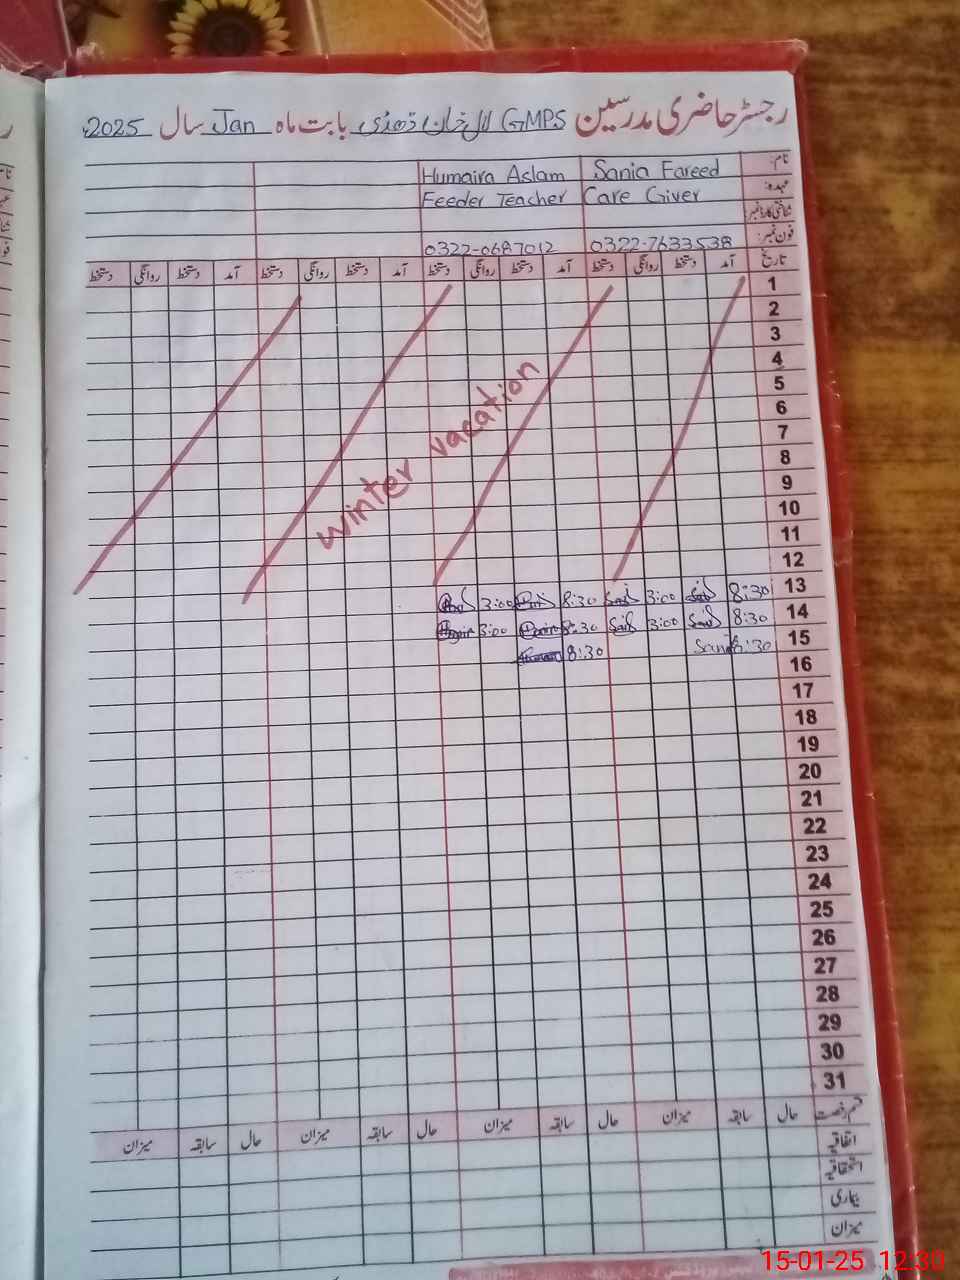 رجسٹر حاضری مدرسین GMPS لال خان ڈھڈی بابت ماہ Jan سال 2025ء
نام: Sania Fareed Humaira Aslam
عہدہ: Care Giver Feeder Teacher
شناختی کارڈ نمبر:
فون نمبر: 0322-7633538 0322-0687012
تاریخ آمد دستخط روانگی دستخط آمد دستخط روانگی دستخط آمد دستخط روانگی دستخط آمد دستخط روانگی دستخط
1
2
3
4
5
6
7
8
9
10
11
12
winter vacation
13 8:30 3:00 8:30 3:00
14 8:30 3:00 8:30 3:00
15 8:30 8:30
16
17
18
19
20
21
22
23
24
25
26
27
28
29
30
31
قسم رخصت حال سابقہ میزان حال سابقہ میزان حال سابقہ میزان حال سابقہ میزان
اتفاقیہ
استحقاقیہ
بیماری
میزان
15-01-25 12:30